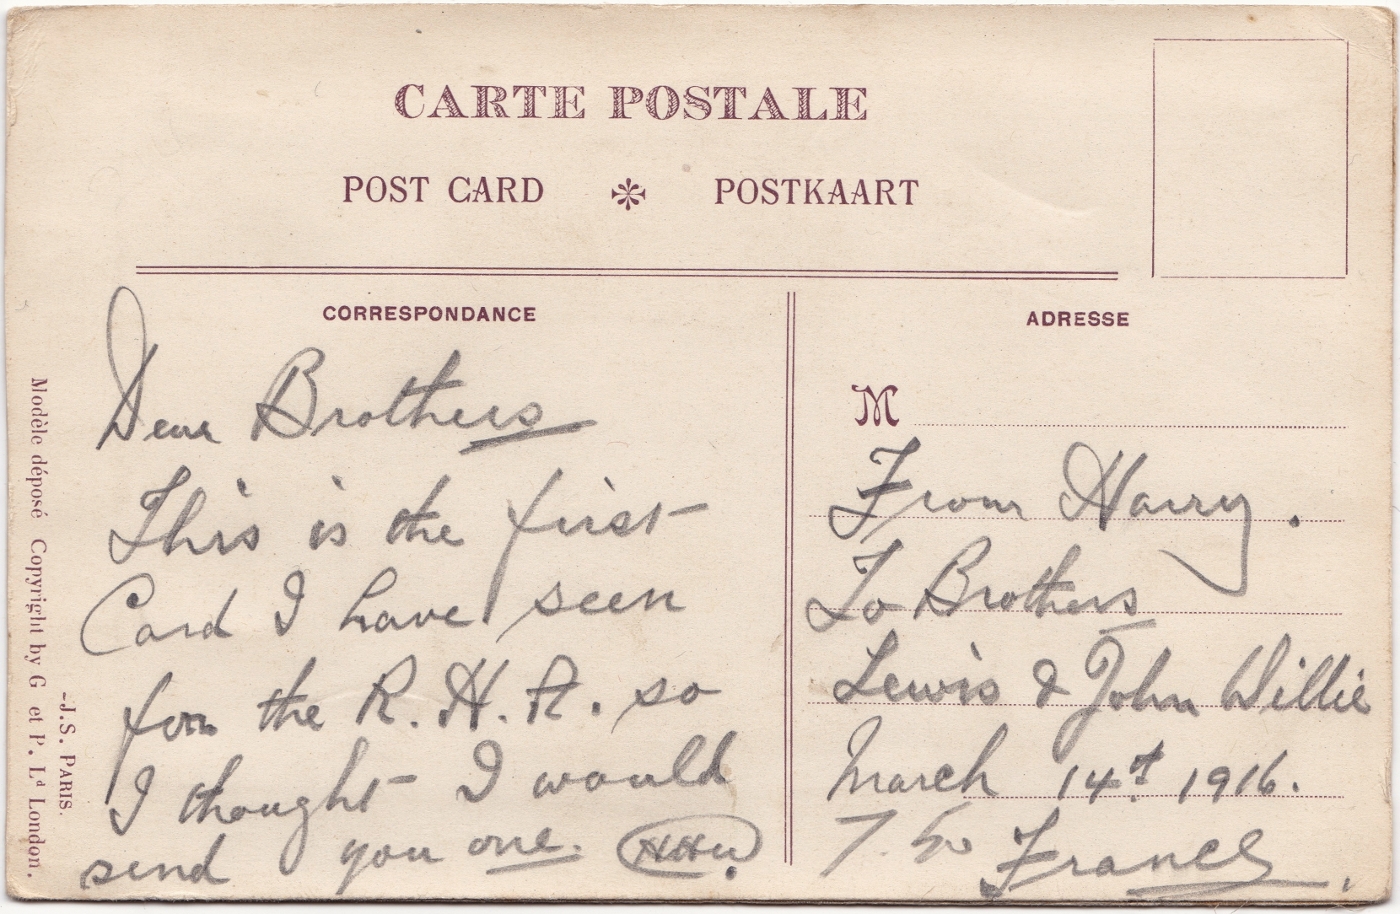 CARTE POSTALE
POST CARD POSTKAART
CORRESPONDANCE
Dear Brothers
This is the first
Card I have seen
for the R.H.A. so
I thought I would
send you one. HHW.
ADRESSE
M
From Harry.
To Brothers
Lewis & John Willie
March 14th 1916.
France.
Modèle déposé Copyright by G et P. Ld London.
-J.S. PARIS.